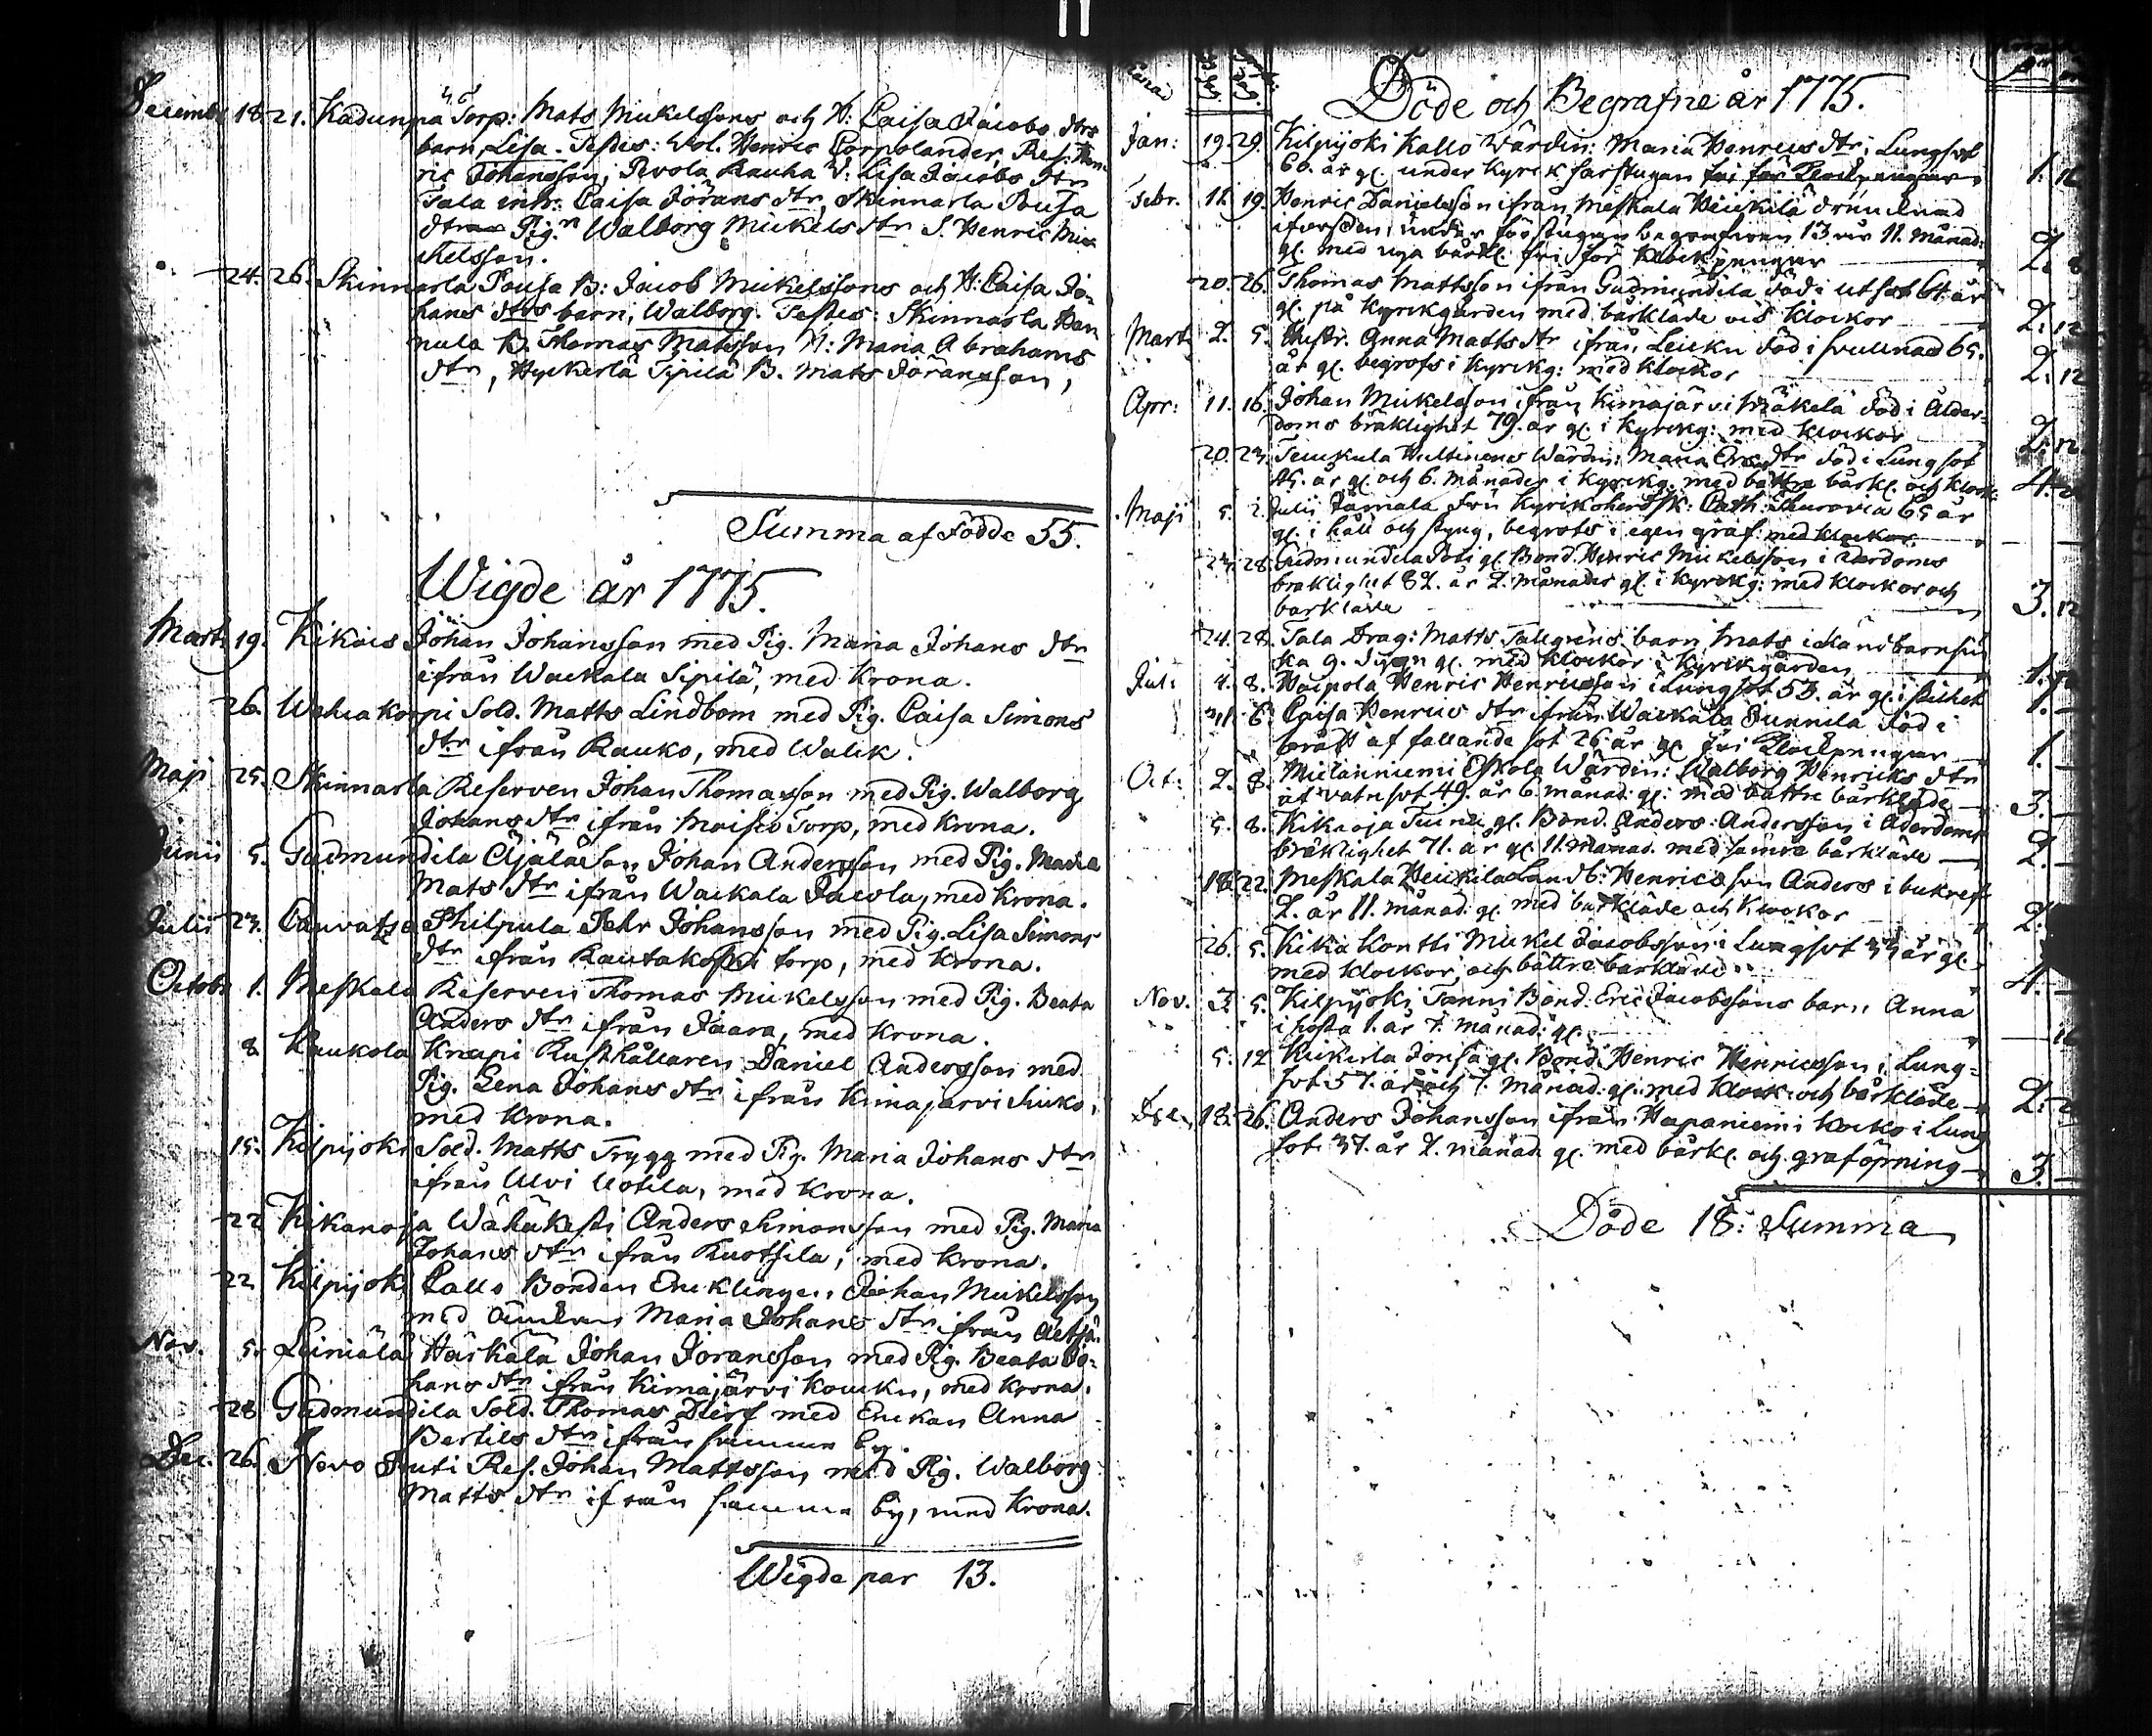 Decembr 18. 21. Kadunpä Torp: Mats Mickelsons och H: Caisa Jacobs dtrs
barn, Lisa. Testes: Wol. Henric Corpolander, Res: Hen
ric Johansson, Pevola Rauha V: Lisa Jacobs dtr
Tala inh: Caisa Jörans dtr, Skinnarla Pousa
dtr Pig.n Walborg Mickels dtr S. Henric Mic
kelsson.
24. 26. Skinnarla Pousa B: Jacob Mickelssons och H: Caisa Jo-
hans dtrs barn, Walborg. Testes: Skinnarla Han
nula B. Thomas Matsson H: Maria Abrahams
dtr, Hyckerlä Sipilä B. Mats Jöransson,
Summa af Födde 55.
Wigde år 1775.
Mart. 19. Kikois Johan Johansson med Pig. Maria Johans dtr
ifrån Wackala Sipilä, med Krona.
26. Wahakorpi Sold. Matts Lindbom med Pig. Caisa Simons
dtr ifrån Rauko, med Walk.
Maji 25. Skinnarla Reserven Johan Thomasson med Pig. Walborg
Johans dtr ifrån Moisio Torp, med Krona.
Junii 5. Gudmundila Äjälä Son Johan Andersson med Pig. Maria
Mats dtr ifrån Wackala Jacola, med Krona.
Julii 23. Cauvatsa Philpula Pehr Johansson med Pig. Lisa Simons
dtr ifrån Rautakoski torp, med Krona.
Octobr 1. Meskala Reserven Thomas Mickelsson med Pig. Beata
Anders dtr ifrån Jaara, med Krona.
8. Raukola Knapi Rusthållaren Daniel Andersson med
Pig. Lena Johans dtr ifrån Kimajärvi
med Krona.
15. Kilpijoki Sold. Matts Trygg med Pig. Maria Johans dtr
ifrån Ulvi Uotila, med Krona.
22 Kikanoja Wähäkesti Anders Simonsson med Pig. Maria
Johans dtr ifrån Ruotsila, med Krona.
22 Kilpijoki Callo Bonden Encklingen Johan Mickelsson
med Änkan Maria Johans dtr ifrån
Nov. 5. Leiniälä Härkälä Johan Joransson med Pig. Beata Jo-
hans dtr ifrån Kimajärvi Koucku, med Krona.
28 Gudmundila Sold. Thomas Dierf med Enckan Anna
Bertils dtr ifrån samma by.
Dec. 26. Novo Outi Res. Johan Mattsson med Pig. Walborg
Matts dtr ifrån samma by, med Krona.
Wigde par 13.
Döde och Begrafne år 1775.
Jan: 19. 29. Kilpijoki Kallo Wärdin: Maria Henrics dtr i Lungsot
60. år gl. under Kyrck farstugan fri för Klockpengar 1: 16
Febr. 11. 19. Henric Danielsson ifrån Meskala Heickilä drunknad
iforsden, under förstugun begrafwen 13 år 11. Månad:
gl. med nya bårkl. fri för Klockpengar 2. 8
20. 26. Thomas Mattsson ifrån Gudmundila död i utsot 64 år
gl. på Kyrckgården med bårkläde och Klockor 2: 12
Mart. 2. 5. Hustr. Anna Matts dtr ifrån Leicku död i svullnad 65.
år gl. begrofs i Kyrckg: med Klockor 2: 12
Apr: 11. 16. Johan Mickelsson ifrån Kimajärvi Mäkelä död i Ålder-
doms bräklighet 79. år gl. i Kyrckg: med Klockor 2. 12
20. 23. Teuckula Hultinens Wärdin: Maria Erics dtr död i Lungsot
45. år gl. och 6. Månader i Kyrckg. med bättre bårkl. och Klock: 4.
Maji 5. Julii Jämala Fru Kyrckoherdsk: Cath: 65 år
gl. i håll och styng, begrofs i egen graf med Klockor
23. 28. Gudmundila gl. Bond. Henric Mickelsson i Ålerdoms
bräklighet 82. år 2. månader gl. i Kyrckg: med Klockor och
bårkläde 3. 12
24. 28. Tala Drag: Matts Tallgrens barn Mats i
ka 9. dygn gl. med Klockor i Kyrckgården
Jul: 4. 8. Haipola Henric Henricsson i Lungsot 53. år gl. 1. —
6. Caisa Henrics dtr ifrån Wackala Junnila död i
brått af fallande sot 26 år gl. fri Klockpengar 1. —
Oct: 2. 8. Mielänniemi Eskola Wärdin: Walborg Henricks dtr
af vatnsot 49. år 6 månad. gl. med bättre bårkläde 3. —
5. 8. Kikanoja gl. Bond. Anders Andersson i Åderdoms
bräklighet 71. år gl. 11. månad. med sämre bårkläde 2. —
18. 22. Meskala Heickilä Landb: Henrics son Anders i bukref
2. år 11. månad: gl. med bårkläde och Klockor 2.
26. 5. Kikä Kontti Mickel Jacobsson i Lungsot 33 år gl.
med Klockor och bättre bårkläde 4. —
Nov. 3. 5. Kilpijoki Tanni Bond. Eric Jacobssons barn Anna
i hosta 1. år 7. månad: gl. — 16
5. 12 Kickerla Jonsa gl. Bond. Henric Henricsson i Lung-
sot 57. år och 7. månad: gl. med Klock: och bårkläde 2.
Dec. 18. 26. Anders Johansson ifrån Haponiemi Kocko i Lung
sot 37. år 2. månad. gl. med bårkl. och graföpning 3. —
Döde 18: Summa